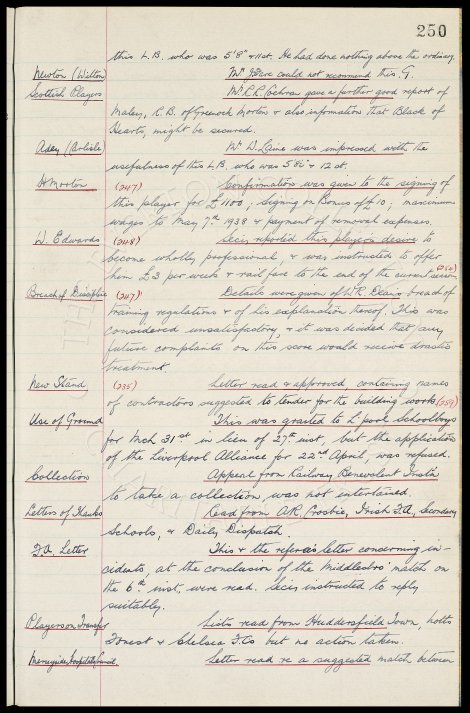 250
this L.B. who was 5'8" & 11 st. He had done nothing above the ordinary.
Newton (Wilton) Mr could not recommend this G.
Scottish Players Mr R.R. Cochran gave a further good report of
Maley, R.B. of Greenock Morton & also information that Black of
Hearts, might be secured.
Aday (Carlisle) Mr D. was impressed with the
usefulness of this L.B. who was 5'8½ & 12 st.
H Morton (247) Confirmation was given to the signing of
this player for £1100, signing on Bonus of £10, maximum
wages to May 7th 1938 & payment of removal expenses.
W. Edwards (248) Secy. reported this players desire to
become wholly professional, & was instructed to offer
him £3 per week & rail fare to the end of the current season
Breach of Discipline (247) Details were given of W.R. Dean's breach of
training regulations & of his explanation hereof. This was
considered unsatisfactory, & it was decided that any
future complaints on this score would receive drastic
treatment.
New Stand (235) Letter read & approved, containing names
of contractors suggested to tender for the building works. (259)
Use of Ground This was granted to L'pool Schoolboys
for Mch 31st in lieu of 27th inst, but the application
of the Liverpool Alliance for 22nd April, was refused.
Collection Appeal from Railway Benevolent Instn
to take a collection, was not entertained.
Letters of Thanks Read from A.R. Crosbie, Irish F.A, Secondary
Schools, & Daily Dispatch.
F.A. Letter This & the referees letter concerning in-
cidents at the conclusion of the Middlesbro' match on
the 6th inst, were read. Secy. instructed to reply
suitably.
Players on Transfer Lists read from Huddersfield Town, Notts
Forest & Chelsea F.Cs but no action taken.
Merseyside Hospitals Council. Letter read re a suggested match between